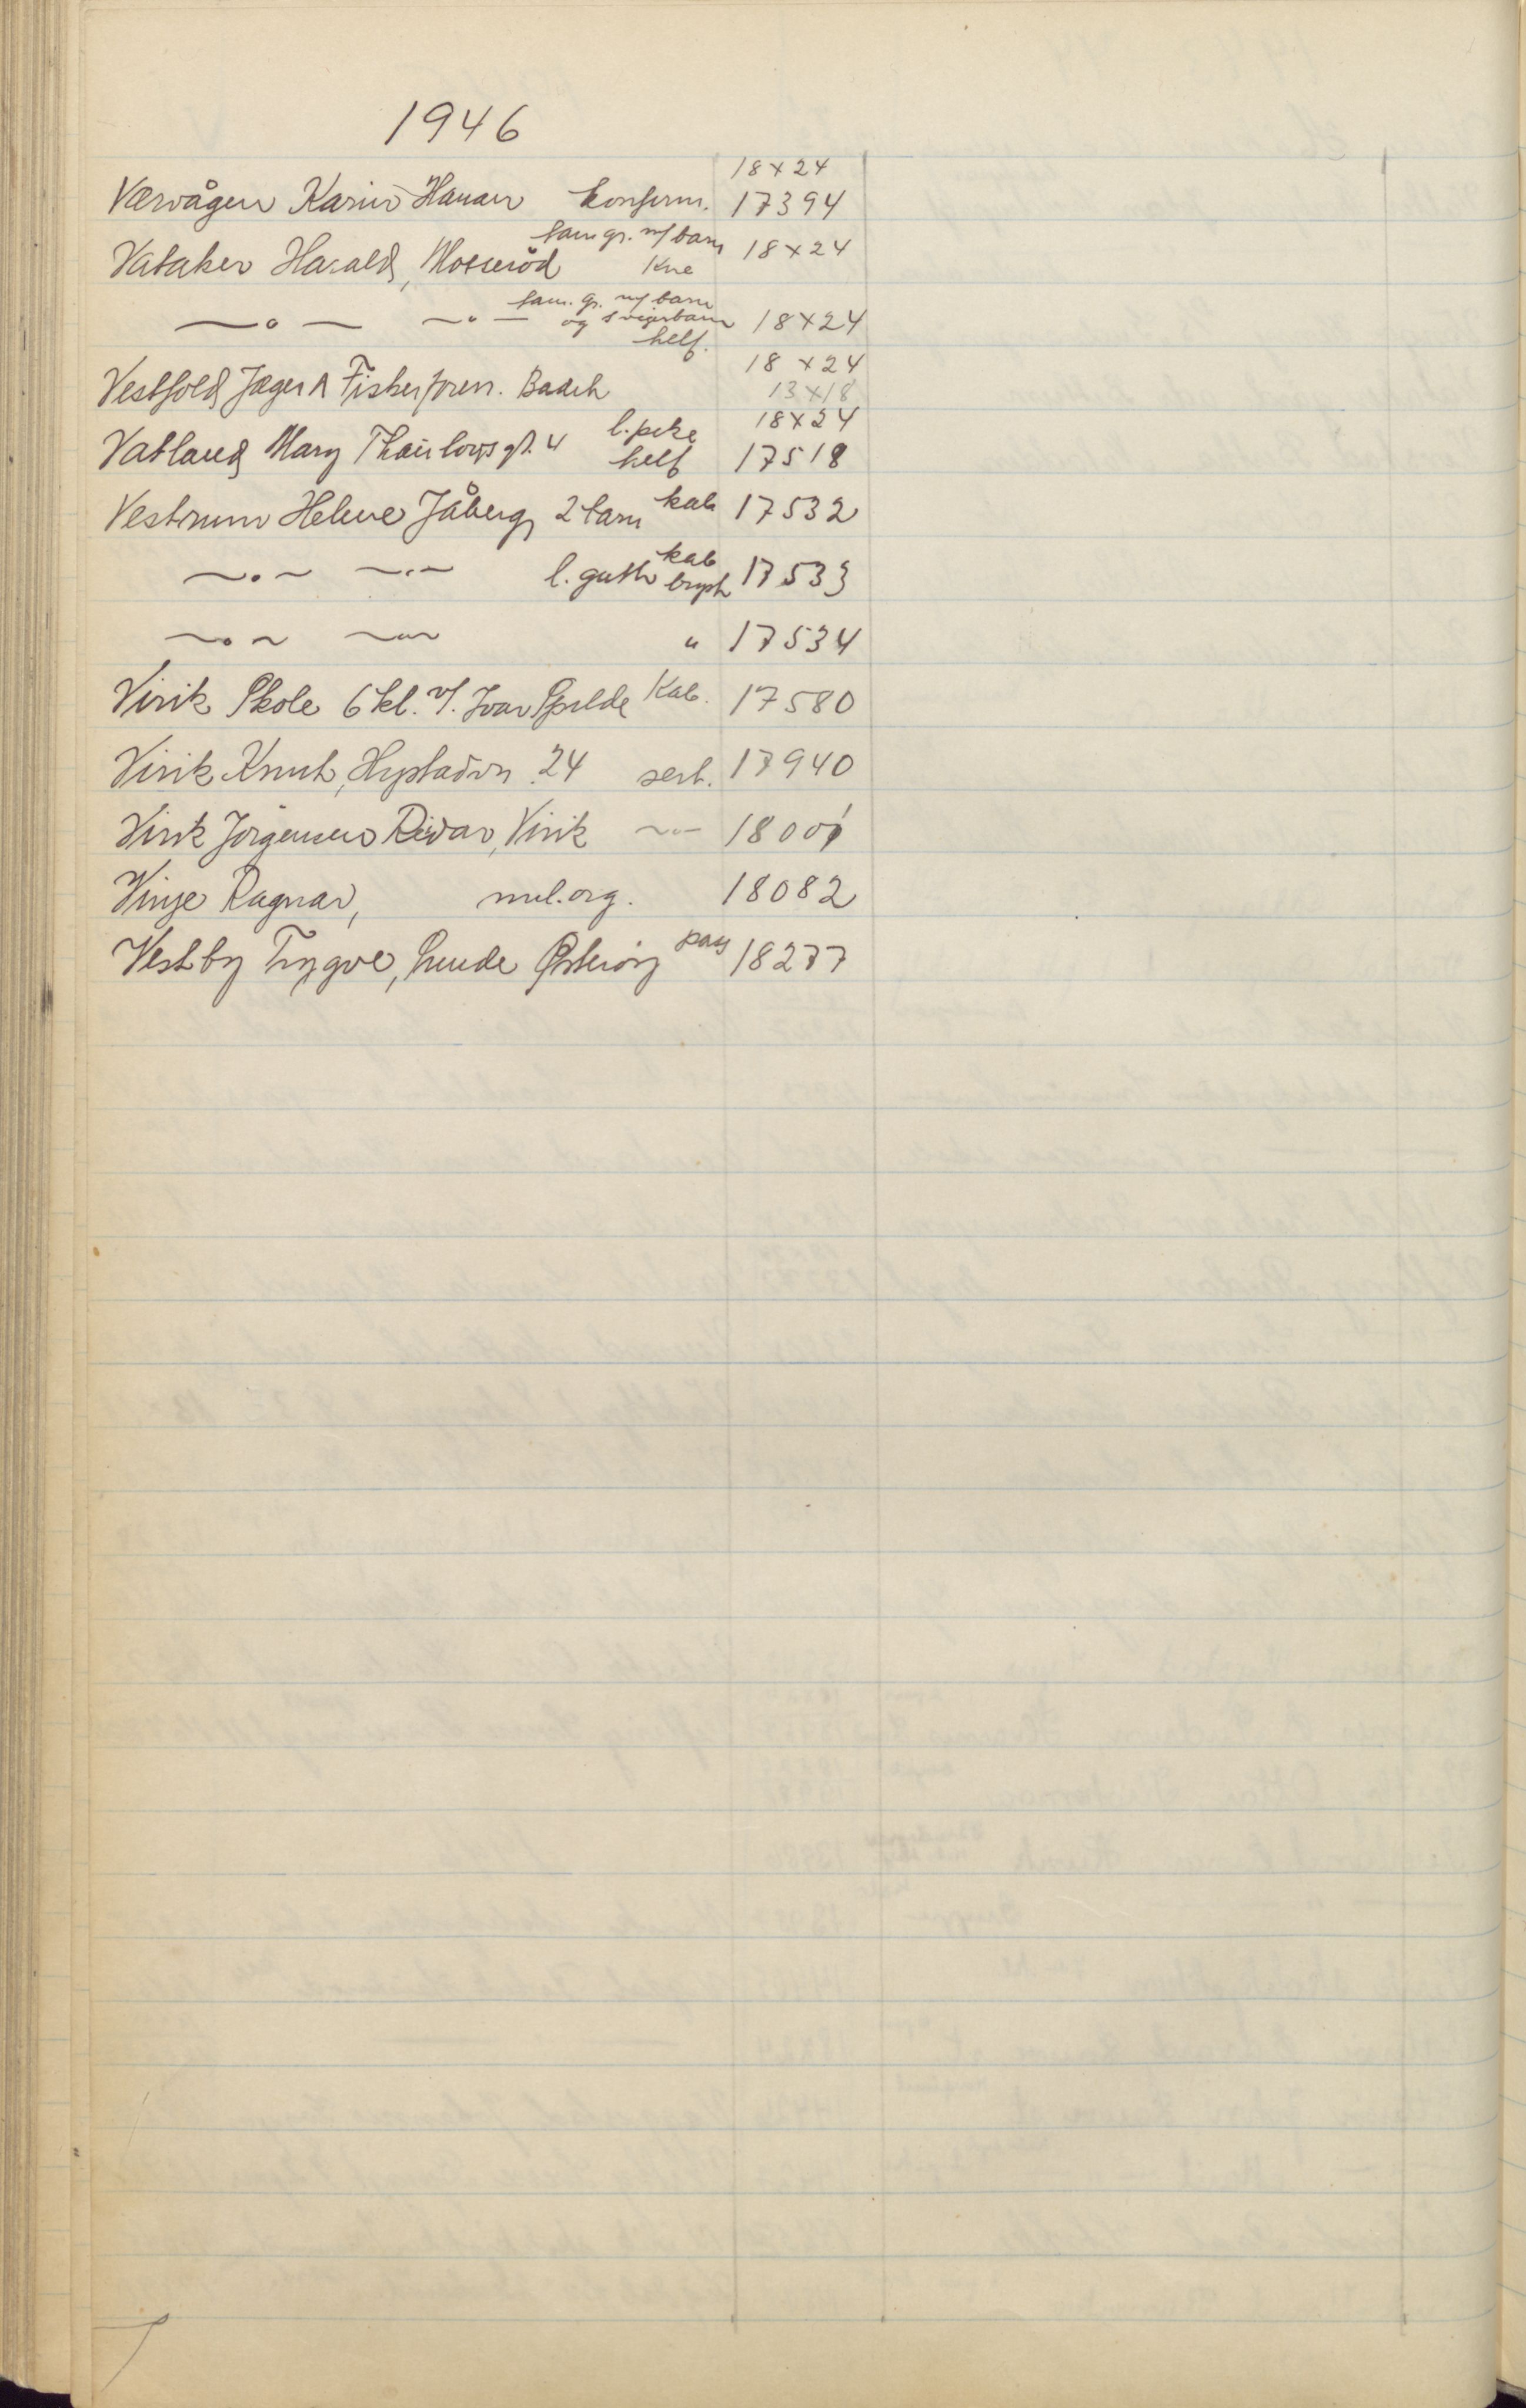 1946
18x24
Værvågen Karin Hauan konfirm. 17394
fam gr. m/ barn
Vataker Harald, Moserød Kne 18x24
fam. gr. m/ barn
—〃— —〃— og svigerbarn 18x24
helf.
18 x 24
Vestfold Jæger & Fiskerforen. Badeh
13x18
l. pike 18x24
Vatland Mary Thaulowsgt. 4 helf 17518
Vestrum Helene Jåberg, 2 barn kab 17532
kab
—〃— —〃— l. gutt bryst 17533
—〃— —〃— " 17534
Virik Skole 6 kl. v/. Ivar Spilde Kab. 17580
Virik Knut, Hystadvn 24 sert. 17940
Virik Jørgensen Reidar, Virik —〃— 18001
Vinje Ragnar, nul.org. 18082
Vestby Trygve, Lunde Østerøy pass 18277